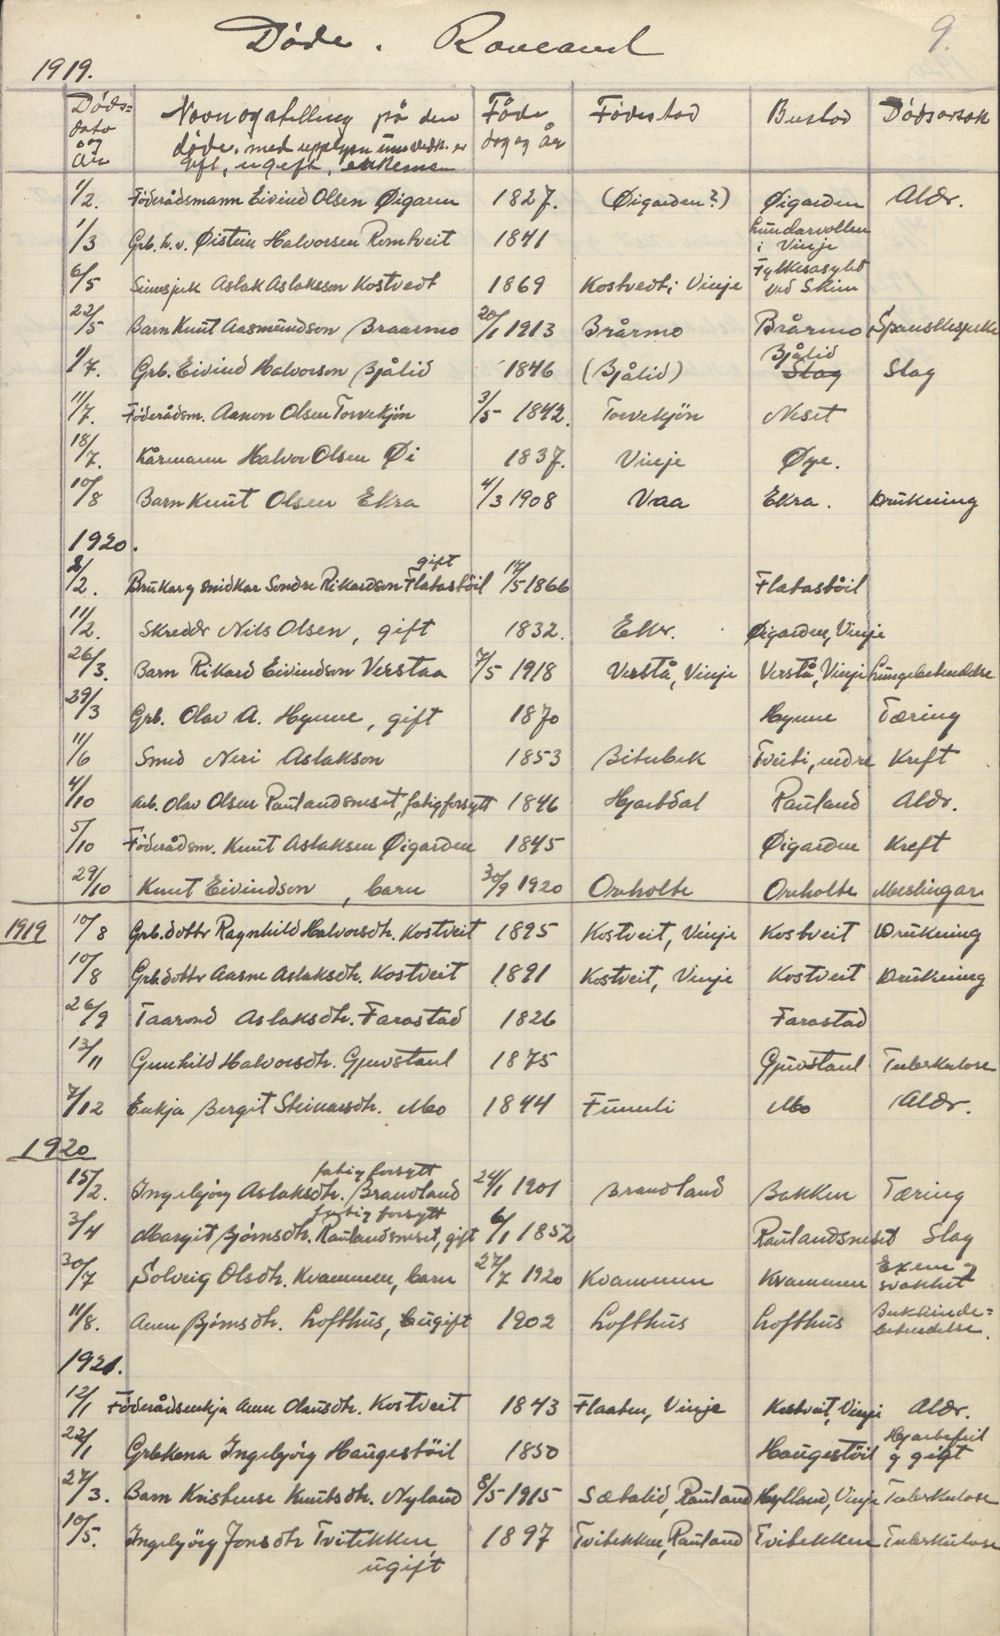 9.
Døde. Rauland
1919.
Døds=dato og år | Navn og stilling på den døde, med upplysn. um vedk. er gift, ugift, enkeman | Føde dag og år | Fødestad | Bustad | Dødsorsak
1/2. Føderådsmann Eivind Olsen Øigaren 1827. (Øigarden?) Øigarden Aldr.
1/3 Grb. h.v. Øistein Halvorsen Romtveit 1841 Lundarvollen i Vinje
6/5 Sinnsjuk Aslak Aslaksson Kostvedt 1869 Kostvedt i Vinje Fylkesasylet ved Skien
22/5 Barn Knut Aasmundson Braarmo 20/1 1913 Brårmo Brårmo Spanskesjuke
1/7. Grb. Eivind Halvorson Bjålid 1846 (Bjålid) Bjålid Slag Slag
11/7. Føderådsm. Aanon Olsen Torvekjön 3/5 1842. Torvekjön Neset
18/7. Kårmann Halvor Olsen Øi 1837. Vinje Øye.
10/8 Barn Knut Olsen Ekra 4/3 1908 Vaa Ekra. Drukning
1920.
2/2. Brukar og smidkar Sondre Rikardson Flatastöil gift 17/5 1866 Flatastöil
11/2. Skreddr Nils Olsen, gift 1832. Øigarden, Vinje
26/3. Barn Rikard Eivindson Verstaa 7/5 1918 Verstå, Vinje Verstå, Vinje Lungebetendelse
29/3 Grb. Olav A. Hynne, gift 1870 Hynne Tæring
11/6 Smed Neri Aslakson 1853 Bitubek Tveiti, nedre Kreft
4/10 Arb. Olav Olsen Raulandsneset, fatigforsytt 1846 Hjartdal Rauland Aldr.
5/10 Föderådsm. Knut Aslaksen Øigarden 1845 Øigarden Kreft
29/10 Knut Eivindson, barn 30/9 1920 Orholte Orholte Meslingar
1919 10/8 Grb.dottr Ragnhild Halvorsdtr. Kostveit 1895 Kostveit, Vinje Kostveit Drukning
10/8 Grb.dottr Aasne Aslaksdtr. Kostveit 1891 Kostveit, Vinje Kostveit Drukning
26/9 Taarond Aslaksdtr. Farastad 1826 Farastad
13/11 Gunhild Halvorsdtr. Gjuvstaul 1875 Gjuvstaul Tuberkulose
7/12 Enkja Bergit Steinarsdtr. Mo 1844 Funnli Mo Aldr.
1920
15/2. Ingebjörg Aslaksdtr. Brandland fatigforsytt 24/1 1901 Brandland Bakken Tæring
3/4 Margit Bjørnsdtr. Raulandsneset, gift fatigforsytt 6/1 1852 Raulandsneset Slag
30/7 Solveig Olsdtr. Kvammen, barn 27/7 1920 Kvammen Kvammen svakhet
11/8. Anne Bjørnsdtr. Lofthus, ugift 1902 Lofthus Lofthus Bukhinde=betendelse.
1921.
12/1 Föderådsenkja Anne Olausdtr. Kostveit 1843 Flaaten, Vinje Kostveit, Vinje Aldr.
22/1 Grbkona Ingebjörg Haugestöil 1850 Haugestöil Hjartefeil og gigt
27/3. Barn Kristense Knutsdtr. Nyland 8/5 1915 Sætalid, Rauland Nylland, Vinje Tuberkulose
10/5. Ingebjörg Jonsdtr Tvitekken, ugift 1897 Tvitekken, Rauland Tvitekken Tuberkulose